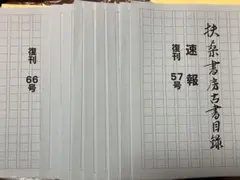 扶桑書房古書目録
速報
復刊
57号
復刊
66号